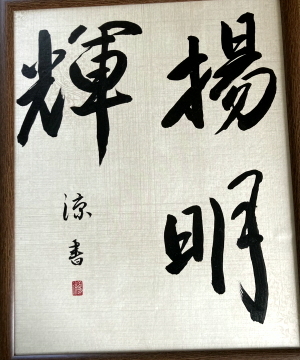 揚明
輝
涼書